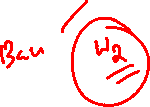 Bau W2